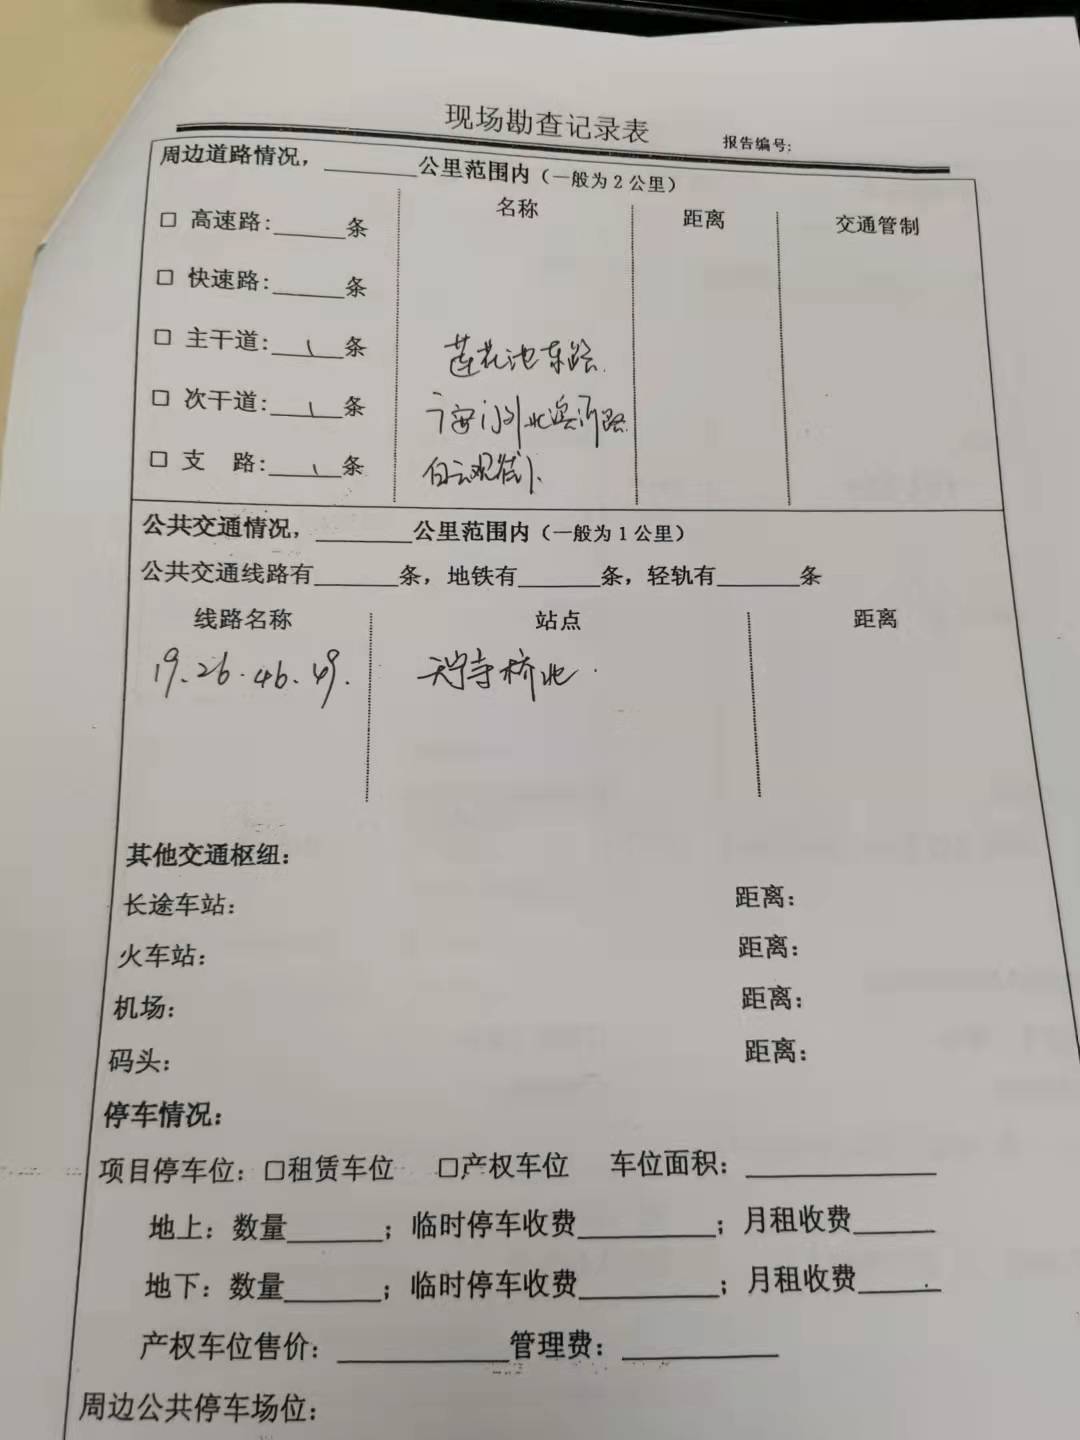 现场勘查记录表
报告编号:
周边道路情况，________公里范围内（一般为2公里）
名称 距离 交通管制
□ 高速路:______条
□ 快速路:______条
□ 主干道:__1__条 莲花池东路.
□ 次干道:__1__条 广安门外北滨河路
□ 支 路:__1__条 白云观街
公共交通情况，________公里范围内（一般为1公里）
公共交通线路有_______条，地铁有_______条，轻轨有_______条
线路名称 站点 距离
19、26.46.49. 天宁寺桥北.
其他交通枢纽:
长途车站: 距离:
火车站: 距离:
机场: 距离:
码头: 距离:
停车情况:
项目停车位: □租赁车位 □产权车位 车位面积:______________
地上: 数量_______; 临时停车收费__________; 月租收费______
地下: 数量_______; 临时停车收费__________; 月租收费______
产权车位售价: ____________管理费: ___________
周边公共停车场位: